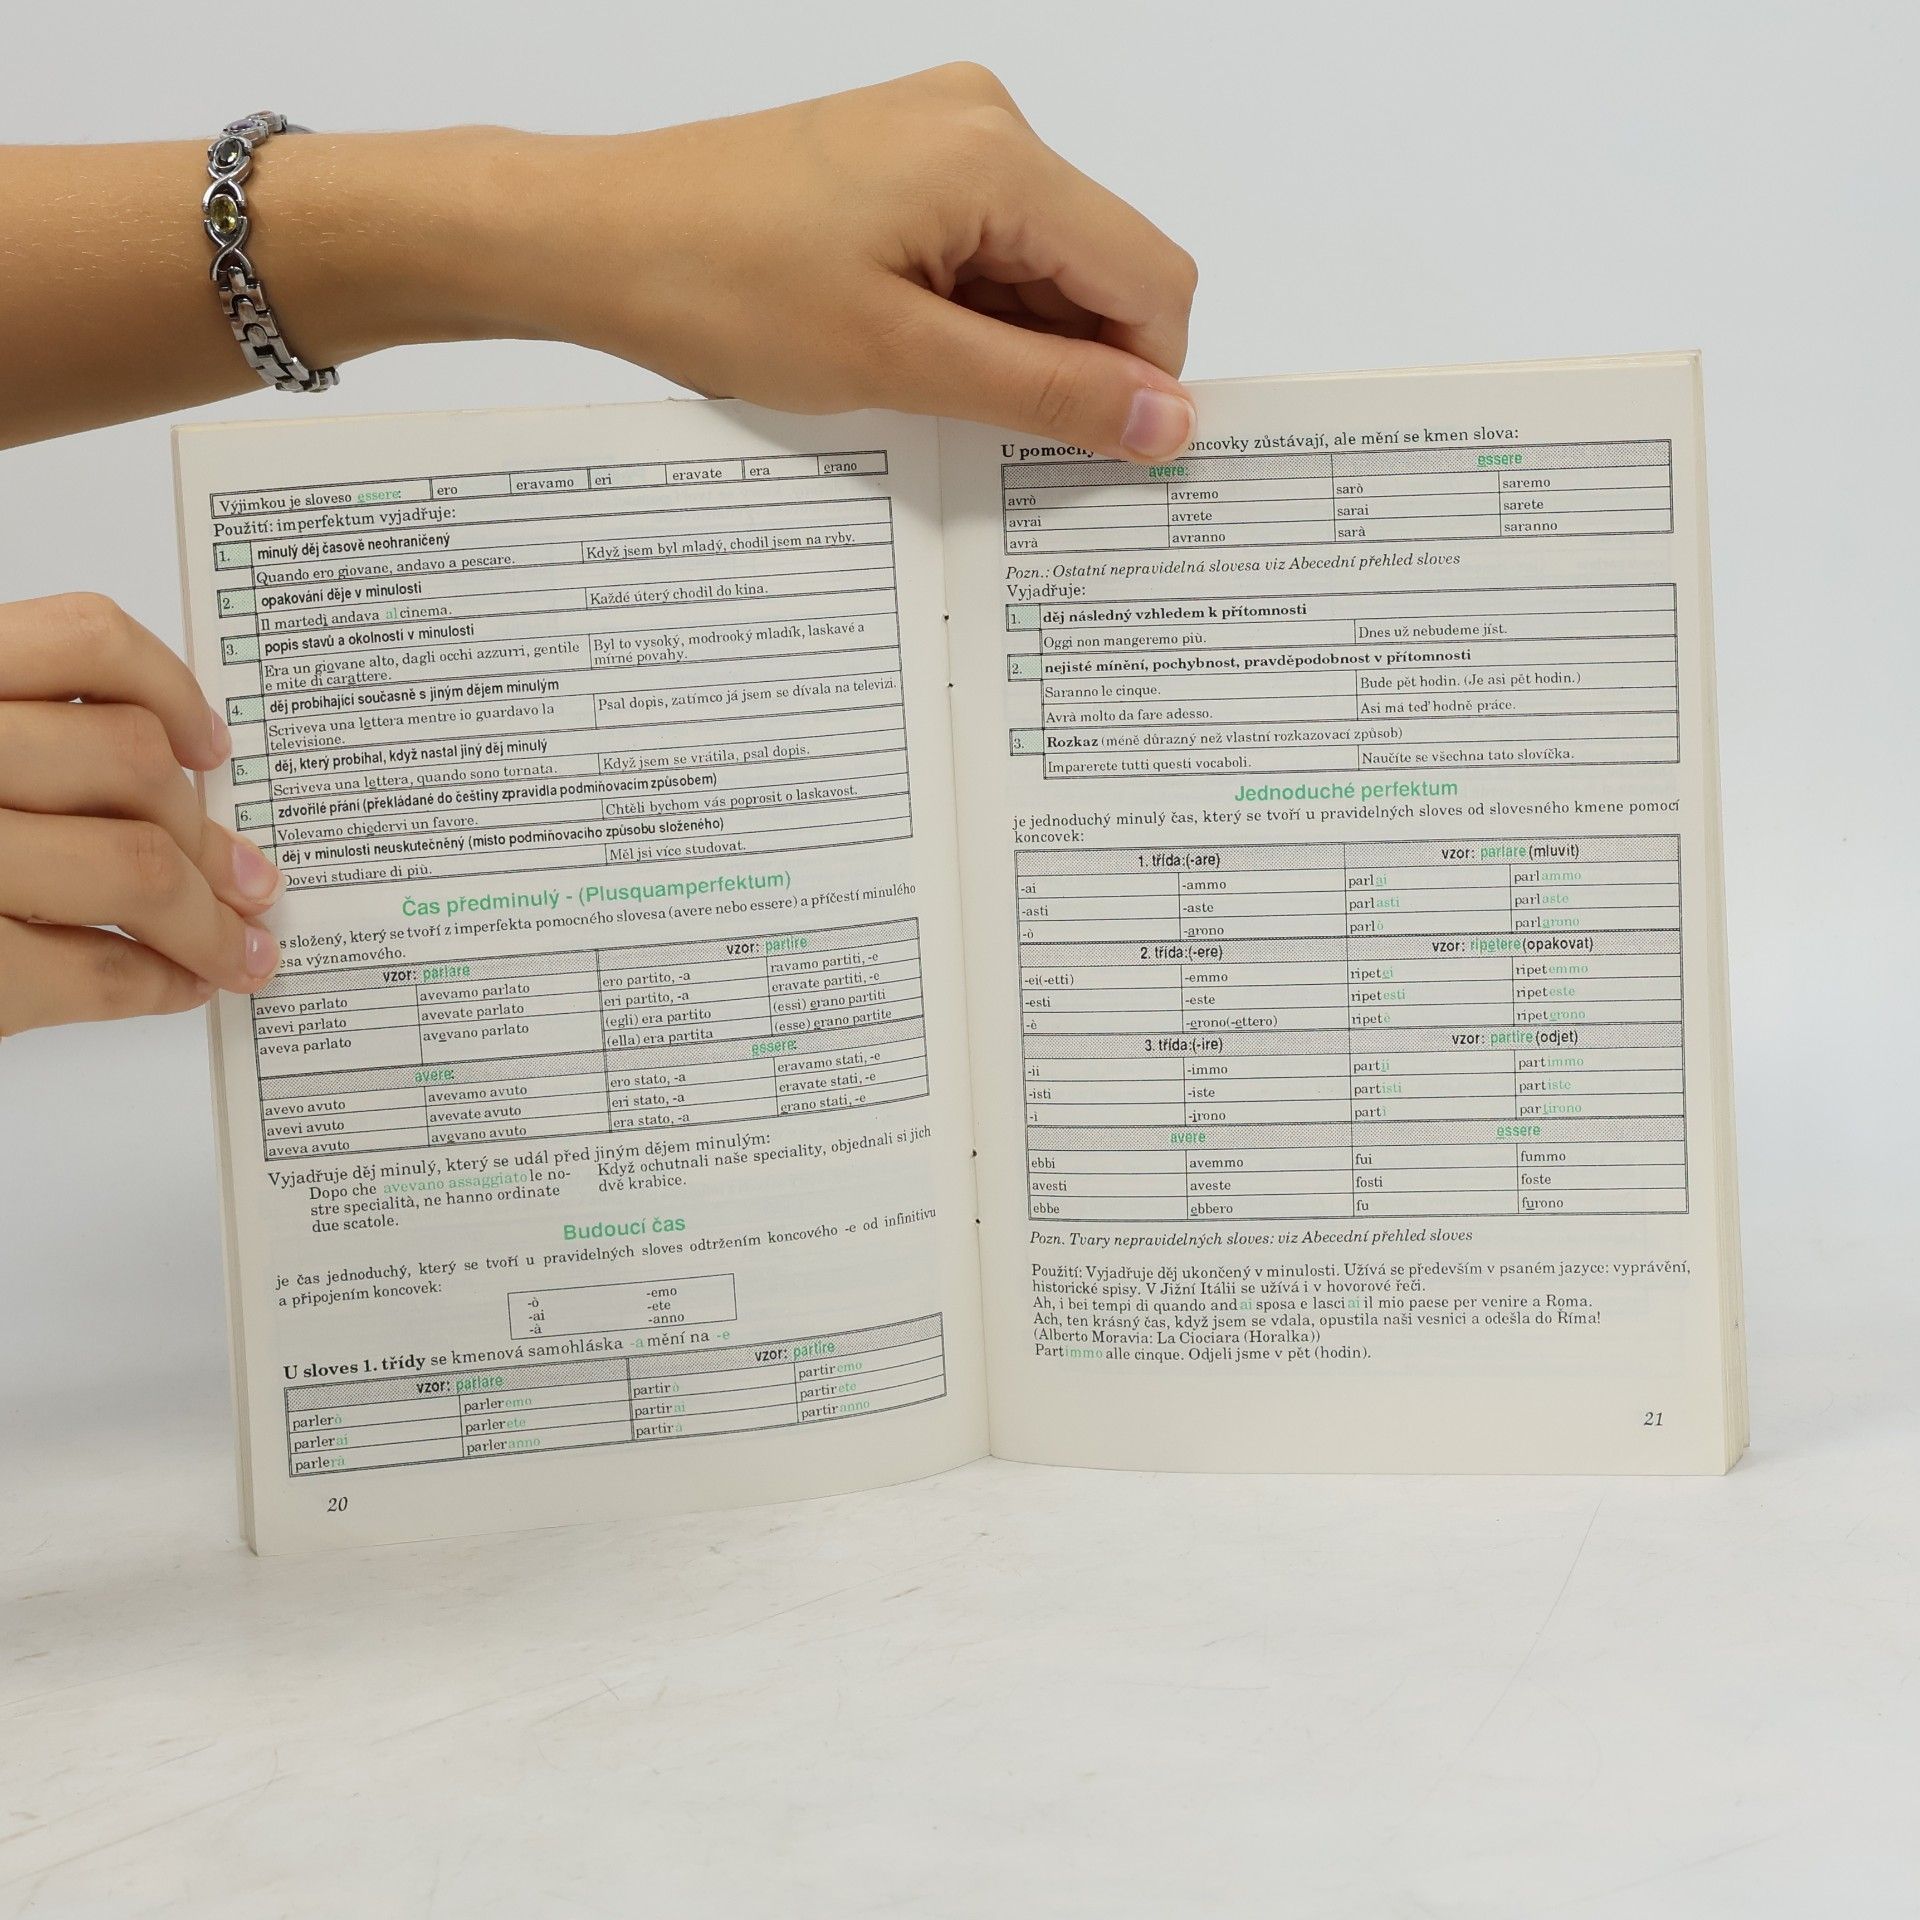 Výjimkou je sloveso essere: ero eravamo eri eravate era erano
Použití: imperfektum vyjadřuje:
1. minulý děj časově neohraničený
Quando ero giovane, andavo a pescare. Když jsem byl mladý, chodil jsem na ryby.
2. opakování děje v minulosti
Il martedì andava al cinema. Každé úterý chodil do kina.
3. popis stavů a okolností v minulosti
Era un giovane alto, dagli occhi azzurri, gentile Byl to vysoký, modrooký mladík, laskavé a
e mite di carattere. mírné povahy.
4. děj probíhající současně s jiným dějem minulým
Scriveva una lettera mentre io guardavo la Psal dopis, zatímco já jsem se dívala na televizi.
televisione.
5. děj, který probíhal, když nastal jiný děj minulý
Scriveva una lettera, quando sono tornata. Když jsem se vrátila, psal dopis.
6. zdvořilé přání (překládané do češtiny zpravidla podmiňovacím způsobem)
Volevamo chiedervi un favore. Chtěli bychom vás poprosit o laskavost.
děj v minulosti neuskutečněný (místo podmiňovacího způsobu složeného)
Dovevi studiare di più. Měl jsi více studovat.
Čas předminulý - (Plusquamperfektum)
s složený, který se tvoří z imperfekta pomocného slovesa (avere nebo essere) a příčestí minulého
esa významového.
vzor: parlare vzor: partire
avevo parlato avevamo parlato ero partito, -a ravamo partiti, -e
avevi parlato avevate parlato eri partito, -a eravate partiti, -e
aveva parlato avevano parlato (egli) era partito (essi) erano partiti
(ella) era partita (esse) erano partite
avere: essere:
avevo avuto avevamo avuto ero stato, -a eravamo stati, -e
avevi avuto avevate avuto eri stato, -a eravate stati, -e
aveva avuto avevano avuto era stato, -a erano stati, -e
Vyjadřuje děj minulý, který se udál před jiným dějem minulým:
Dopo che avevano assaggiato le no- Když ochutnali naše speciality, objednali si jich
stre specialità, ne hanno ordinate dvě krabice.
due scatole.
Budoucí čas
je čas jednoduchý, který se tvoří u pravidelných sloves odtržením koncového -e od infinitivu
a připojením koncovek:
-ò -emo
-ai -ete
-à -anno
U sloves 1. třídy se kmenová samohláska -a mění na -e
vzor: parlare vzor: partire
parlerò parleremo partirò partiremo
parlerai parlerete partirai partirete
parlerà parleranno partirà partiranno
20
U pomocný oncovky zůstávají, ale mění se kmen slova:
avere: essere
avrò avremo sarò saremo
avrai avrete sarai sarete
avrà avranno sarà saranno
Pozn.: Ostatní nepravidelná slovesa viz Abecední přehled sloves
Vyjadřuje:
1. děj následný vzhledem k přítomnosti
Oggi non mangeremo più. Dnes už nebudeme jíst.
2. nejisté mínění, pochybnost, pravděpodobnost v přítomnosti
Saranno le cinque. Bude pět hodin. (Je asi pět hodin.)
Avrà molto da fare adesso. Asi má teď hodně práce.
3. Rozkaz (méně důrazný než vlastní rozkazovací způsob)
Imparerete tutti questi vocaboli. Naučíte se všechna tato slovíčka.
Jednoduché perfektum
je jednoduchý minulý čas, který se tvoří u pravidelných sloves od slovesného kmene pomocí
koncovek:
1. třída:(-are) vzor: parlare (mluvit)
-ai -ammo parlai parlammo
-asti -aste parlasti parlaste
-ò -arono parlò parlarono
2. třída:(-ere) vzor: ripetere (opakovat)
-ei(-etti) -emmo ripetei ripetemmo
-esti -este ripetesti ripeteste
-è -erono(-ettero) ripetè ripeterono
3. třída:(-ire) vzor: partire (odjet)
-ii -immo partii partimmo
-isti -iste partisti partiste
-ì -irono partì partirono
avere essere
ebbi avemmo fui fummo
avesti aveste fosti foste
ebbe ebbero fu furono
Pozn. Tvary nepravidelných sloves: viz Abecední přehled sloves
Použití: Vyjadřuje děj ukončený v minulosti. Užívá se především v psaném jazyce: vyprávění,
historické spisy. V Jižní Itálii se užívá i v hovorové řeči.
Ah, i bei tempi di quando andai sposa e lasciai il mio paese per venire a Roma.
Ach, ten krásný čas, když jsem se vdala, opustila naši vesnici a odešla do Říma!
(Alberto Moravia: La Ciociara (Horalka))
Partimmo alle cinque. Odjeli jsme v pět (hodin).
21